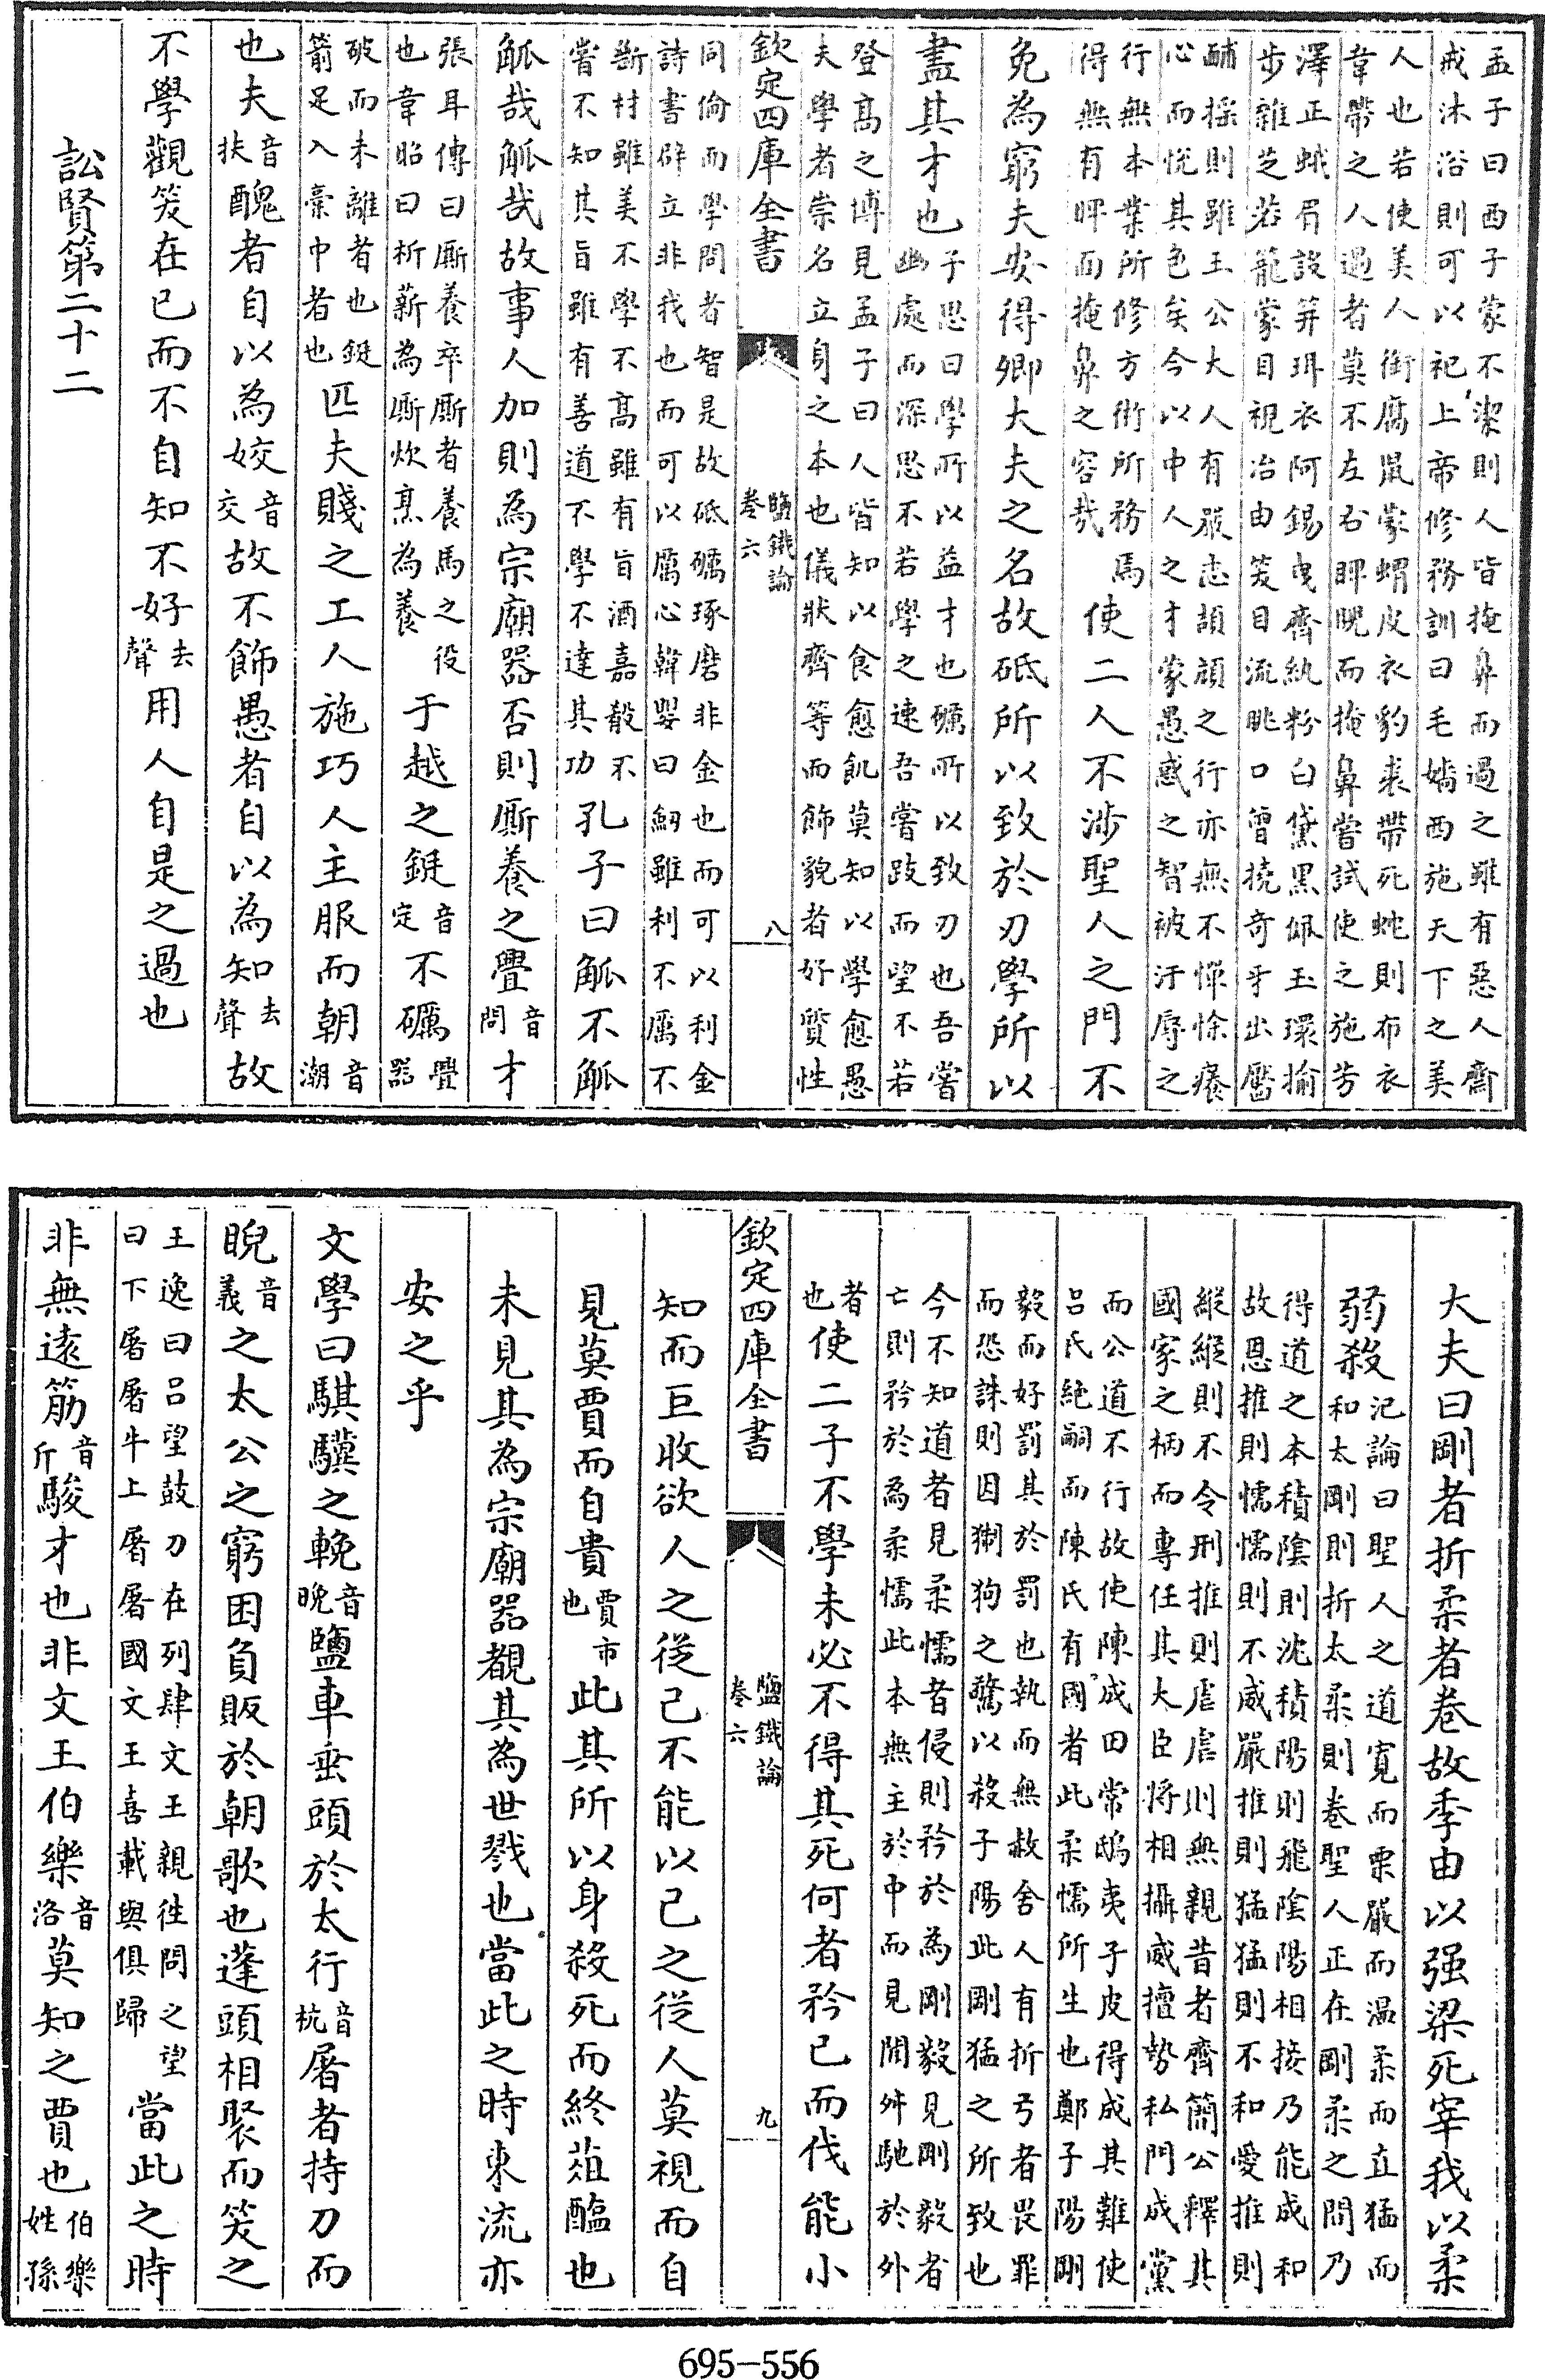 孟子曰西子蒙不潔則人皆掩鼻而過之雖有惡人齋
戒沐浴則可以祀上帝修務訓曰毛嫱西施天下之美
人也若使美人銜腐鼠蒙蝟皮衣豹裘帶死蛇則布衣
韋帶之人過者莫不左右睥睨而掩鼻嘗試使之施芳
澤正蛾眉設笄珥衣阿錫曳齊紈粉白黛黑佩玉環揄
步雜芝若籠蒙目視冶由笑目流眺口曾撓奇牙出靨
酺搖則雖王公大人有嚴志頡頏之行亦無不憚悇癢
心而悅其色矣今以中人之才蒙愚惑之智被汙辱之
行無本業所修方術所務焉
得無有睥面掩鼻之容哉
使二人不涉聖人之門不
免為窮夫安得卿大夫之名故砥所以致於刃學所以
盡其才也
子思曰學所以益才也礪所以致刃也吾嘗
幽處而深思不若學之速吾嘗跂而望不若
登高之博見孟子曰人皆知以食愈飢莫知以學愈愚
夫學者崇名立身之本也儀狀齊等而飾貌者好質性
欽定四庫全書
鹽鐵論
卷六
八
同倫而學問者智是故砥礪琢磨非金也而可以利金
詩書辟立非我也而可以厲心韓嬰曰劒雖利不厲不
斷材雖美不學不高雖有旨酒嘉殽不
嘗不知其旨雖有善道不學不達其功
孔子曰觚不觚
觚哉觚哉故事人加則為宗廟器否則厮養之舋音問才
張耳傳曰厮養卒厮者養馬之役
也韋昭曰析薪為厮炊烹為養
于越之鋌音定不礪舋器
破而未離者也鋌
箭足入槀中者也
匹夫賤之工人施巧人主服而朝音潮
也夫音扶醜者自以為姣音交故不飾愚者自以為知去聲故
不學觀笑在已而不自知不好去聲用人自是之過也
訟賢第二十二
大夫曰剛者折柔者卷故季由以强梁死宰我以柔
弱殺
氾論曰聖人之道寛而栗嚴而温柔而直猛而
和太剛則折太柔則卷聖人正在剛柔之間乃
得道之本積陰則沈積陽則飛陰陽相接乃能成和
故恩推則懦懦則不威嚴推則猛猛則不和愛推則
縱縱則不令刑推則虐虐則無親昔者齊簡公釋其
國家之柄而專任其大臣将相攝威擅勢私門成黨
而公道不行故使陳成田常鴟夷子皮得成其難使
吕氏絶嗣而陳氏有國者此柔懦所生也鄭子陽剛
毅而好罰其於罰也執而無赦舍人有折弓者畏罪
而恐誅則因猘狗之驚以殺子陽此剛猛之所致也
今不知道者見柔懦者侵則矜於為剛毅見剛毅者
亡則矜於為柔懦此本無主於中而見聞舛馳於外
者也使二子不學未必不得其死何者矜已而伐能小
欽定四庫全書
鹽鐵論
卷六
九
知而巨收欲人之從己不能以己之從人莫視而自
見莫賈而自貴賈市也此其所以身殺死而終葅醢也
未見其為宗廟器覩其為世戮也當此之時東流亦
安之乎
文學曰騏驥之輓音晩鹽車垂頭於太行音杭屠者持刀而
睨音義之太公之窮困負販於朝歌也蓬頭相聚而笑之
王逸曰吕望鼓刀在列肆文王親徃問之望
曰下屠屠牛上屠屠國文王喜載與俱歸
當此之時
非無遠筋音斤駿才也非文王伯樂音洛莫知之賈也伯樂姓孫
695-556